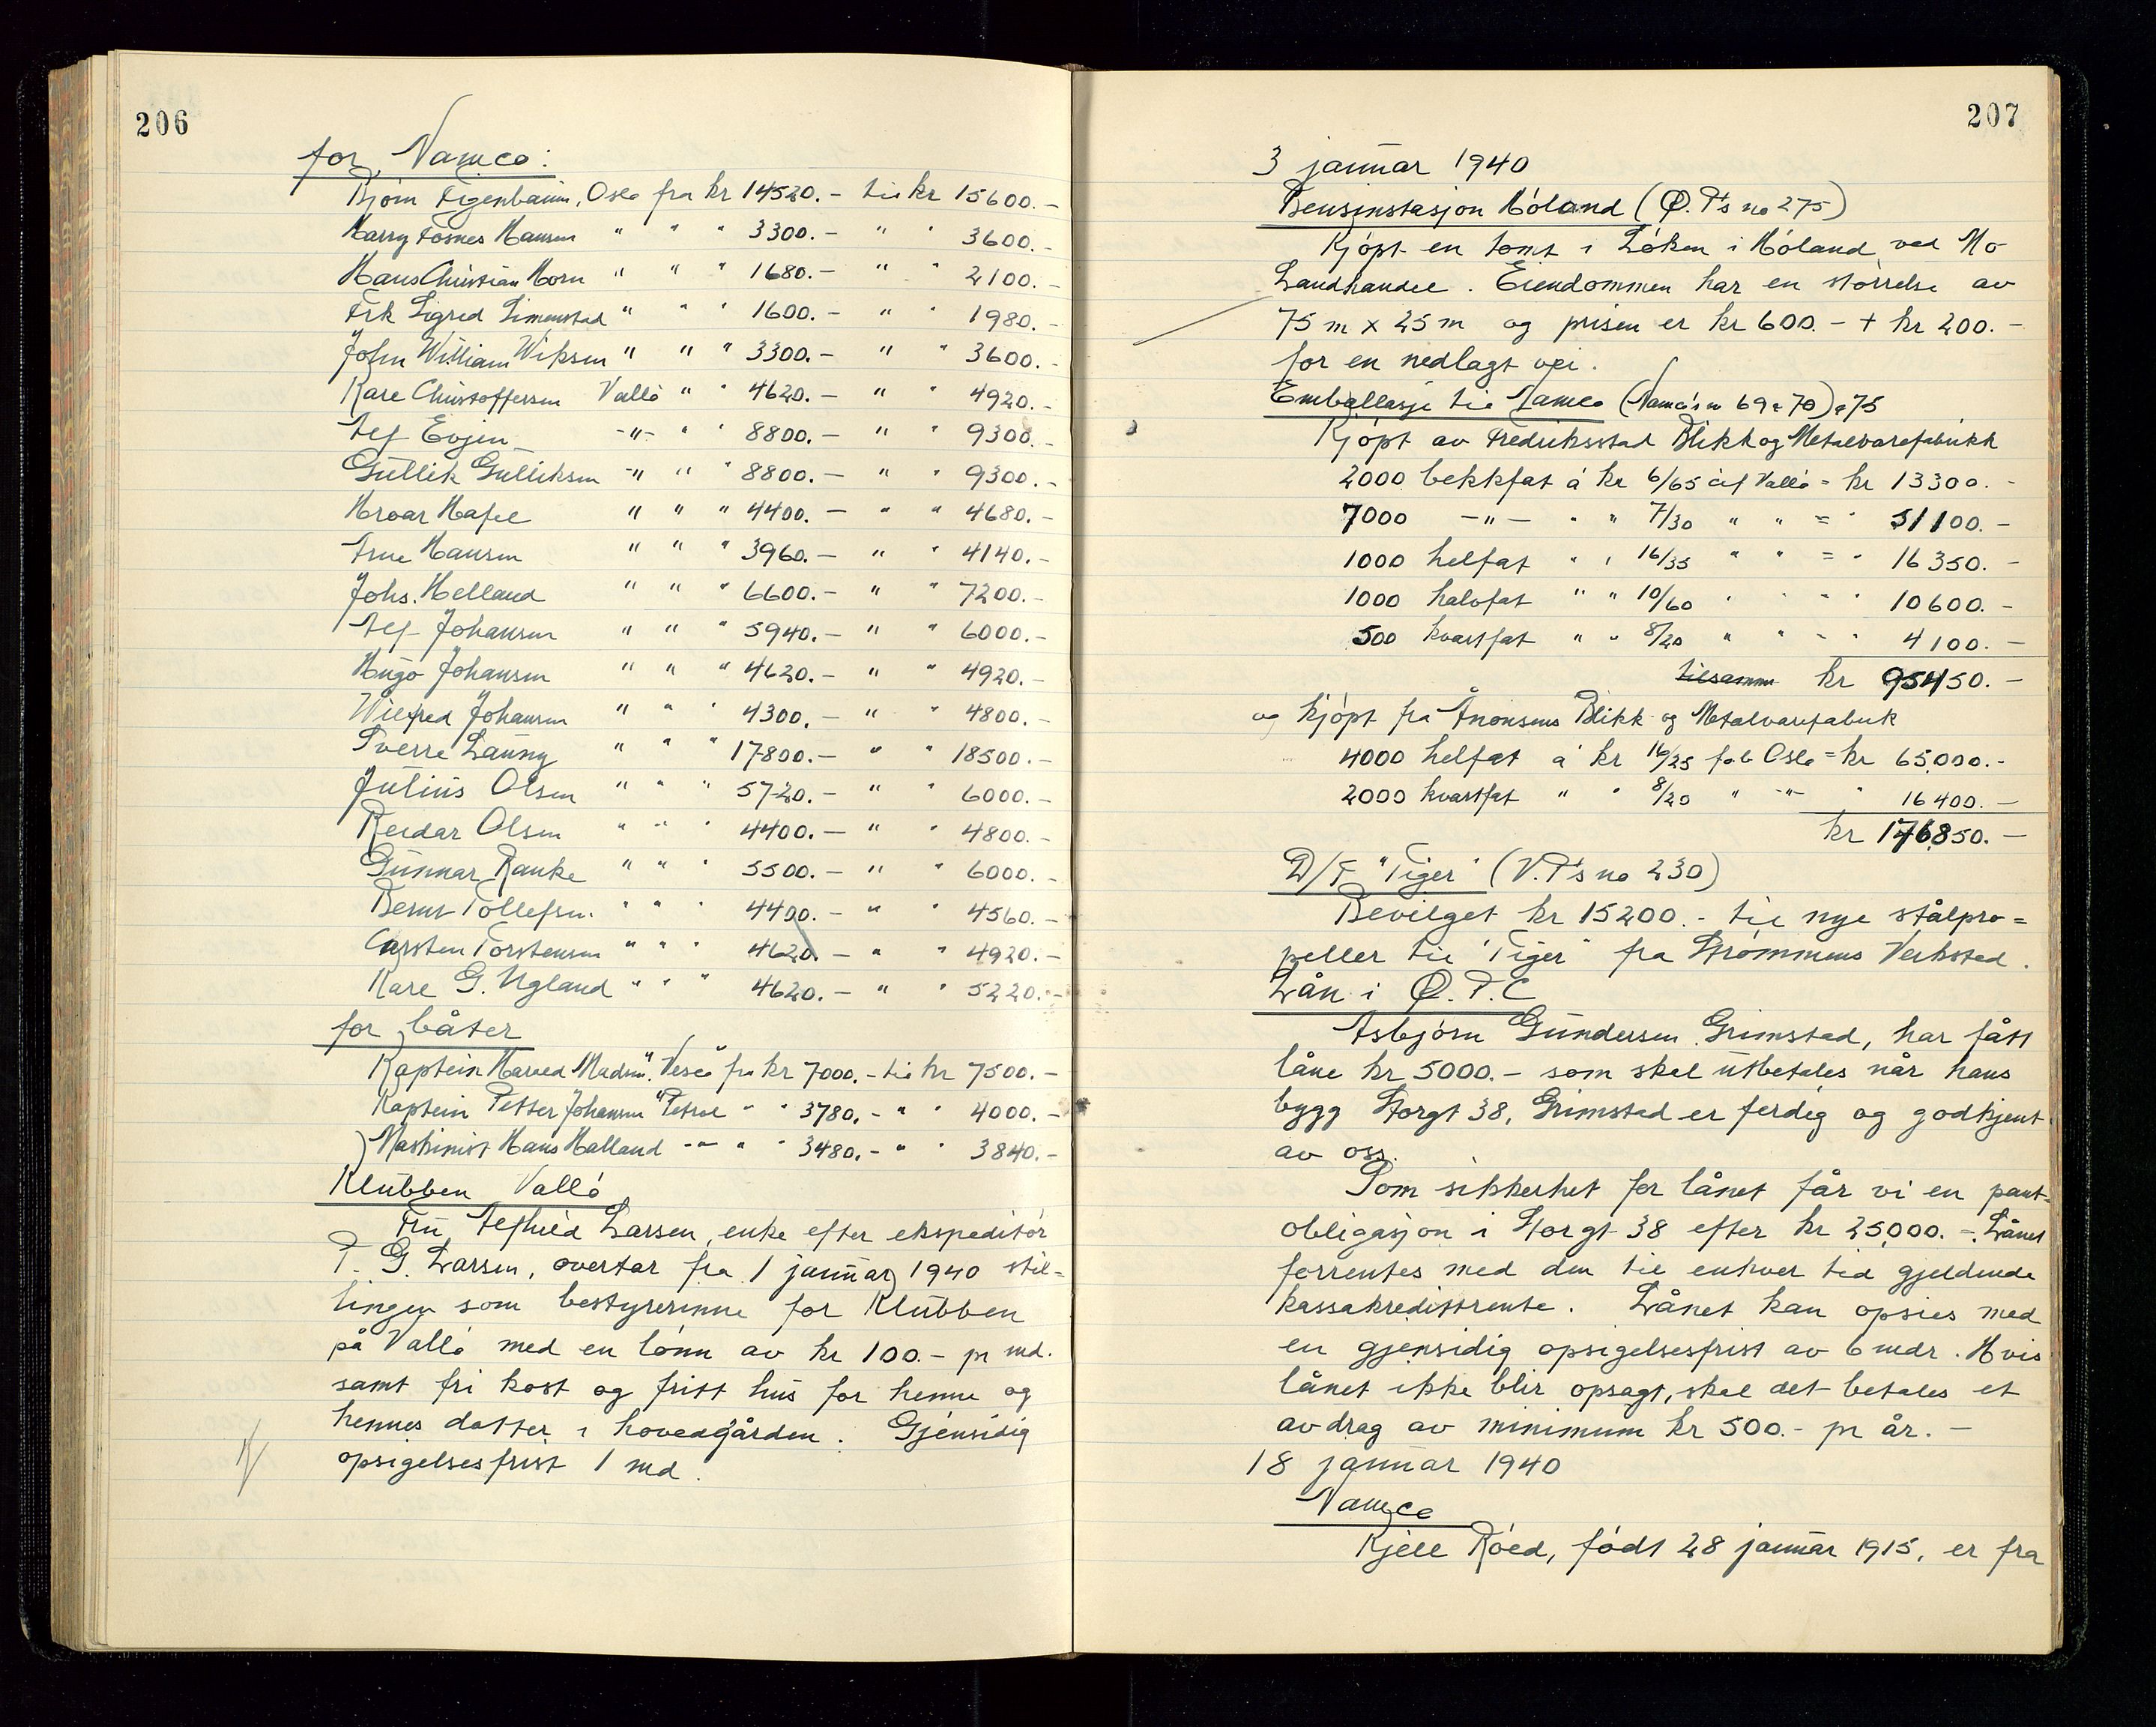 206
for Namco:
Bjørn Figenbaum, Oslo fra kr 14520.- til kr 15600.-
Harry Fosnes Hansen " " " 3300.- " " 3600.-
Hans Christian Horn " " " 1680.- " " 2100.-
Frk Sigred Simenstad " " " 1600.- " " 1980.-
John William Wiksen " " " 3300.- " " 3600.-
Kåre Christoffersen Vallö " " 4620.- " " 4920.-
Alf Evjen -"- " " 8800.- " " 9300.-
Gullik Gulliksen -"- " " 8800.- " " 9300.-
Hroar Hafel " " " 4400.- " " 4680.-
Arne Hansen " " " 3960.- " " 4140.-
Johs. Helland " " " 6600.- " " 7200.-
Alf Johansen " " " 5940.- " " 6000.-
Hugo Johansen " " " 4620.- " " 4920.-
Wilfred Johansen " " " 4300.- " " 4800.-
Sverre Launy " " " 17800.- " " 18500.-
Julius Olsen " " " 5720.- " " 6000.-
Reidar Olsen " " " 4400.- " " 4800.-
Gunnar Ranke " " " 5500.- " " 6000.-
Bernt Tollefsen " " " 4400.- " " 4560.-
Carsten Torstensen " " " 4620.- " " 4920.-
Kåre G. Ugland " " " 4620.- " " 5220.-
for båter
Kaptein Harald Madsen "Vesco" fra kr 7000.- til kr 7500.-
Kaptein Petter Johansen "Petrol" " " 3780.- " " 4000.-
Maskinist Hans Halland -"- " " 3480.- " " 3840.-
Klubben Vallö
Fru Alfhild Larsen, enke efter ekspeditör
P. G. Larsen, overtar fra 1 januar 1940 stil=
lingen som bestyrerinne for Klubben
på Vallö med en lönn av kr 100.- pr md.
samt fri kost og fritt hus for henne og
hennes datter i hovedgården. Gjensidig
opsigelsesfrist 1 md.
207
3 januar 1940
Bensinstasjon Höland (Ø.P's no 275)
Kjöpt en tomt i Löken i Höland ved Mo
Landhandel. Eiendommen har en störrelse av
75 m x 25 m og prisen er kr 600.- + kr 200.-
for en nedlagt vei.
Emballasje til Namco (Namco's no 69 & 70) & 75
Kjöpt av Fredriksstad Blikk og Metalvarefabrikk
2000 bekkfat á kr 6/65 cif Vallö = kr 13300.-
7000 -"- " " 7/30 " " = " 51100.-
1000 helfat " " 16/35 " " = " 16350.-
1000 halvfat " " 10/60 " " " " 10600.-
500 kvartfat " " 8/20 " " " " 4100.-
tilsammen kr 95450.-
og kjöpt fra Ånonsens Blikk- og Metalvarefabrik
4000 helfat á kr 16/25 fob Oslo = kr 65,000.-
2000 kvartfat " " 8/20 " -"- " 16400.-
kr 176,850.-
D/T "Tiger" (V.P's no 230)
Bevilget kr 15200.- til nye stålpro=
peller til "Tiger" fra Strømmens Verksted.
Lån i Ø.P.C
Asbjörn Gundersen Grimstad, har fått
låne kr 5000.- som skal utbetales når hans
bygg Storgt 38, Grimstad er ferdig og godkjent
av oss.
Som sikkerhet for lånet får vi en pant-
obligasjon i Storgt 38 efter kr 25,000.-. Lånet
forrentes med den til enhver tid gjeldende
kassakredittrente. Lånet kan opsies med
en gjensidig opsigelsesfrist av 6 mdr. Hvis
lånet ikke blir opsagt, skal det betales et
avdrag av minimum kr 500.- pr år.-
18 januar 1940
Namco
Kjell Röed, födt 28 januar 1915, er fra